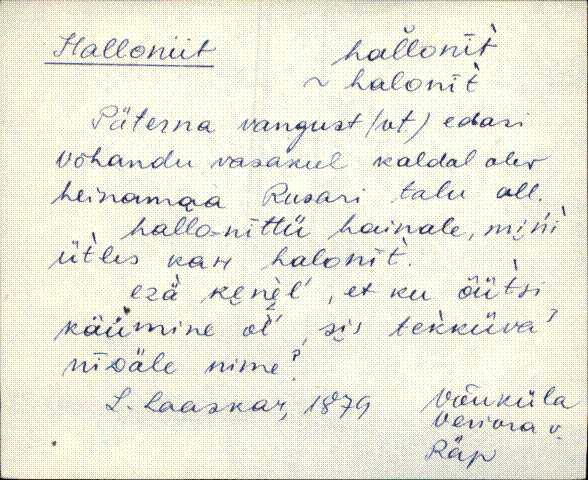 Halloniit
hallonit̀
~ halonit̀
Püterna vangust (vt) edasi
Võhandu vasakul kaldal olev
heinamaa Rusari talu all.
hallo-nittü hainale, mińi
üt̀les kah halonit̀.
ezä keneĺ, et ku öüt̀si
käümine oĺ, sis tek̀küvaʔ
nisäle nimeʔ.
L. Laaskar, 1879
Võuküla
Veriora v.
Räp